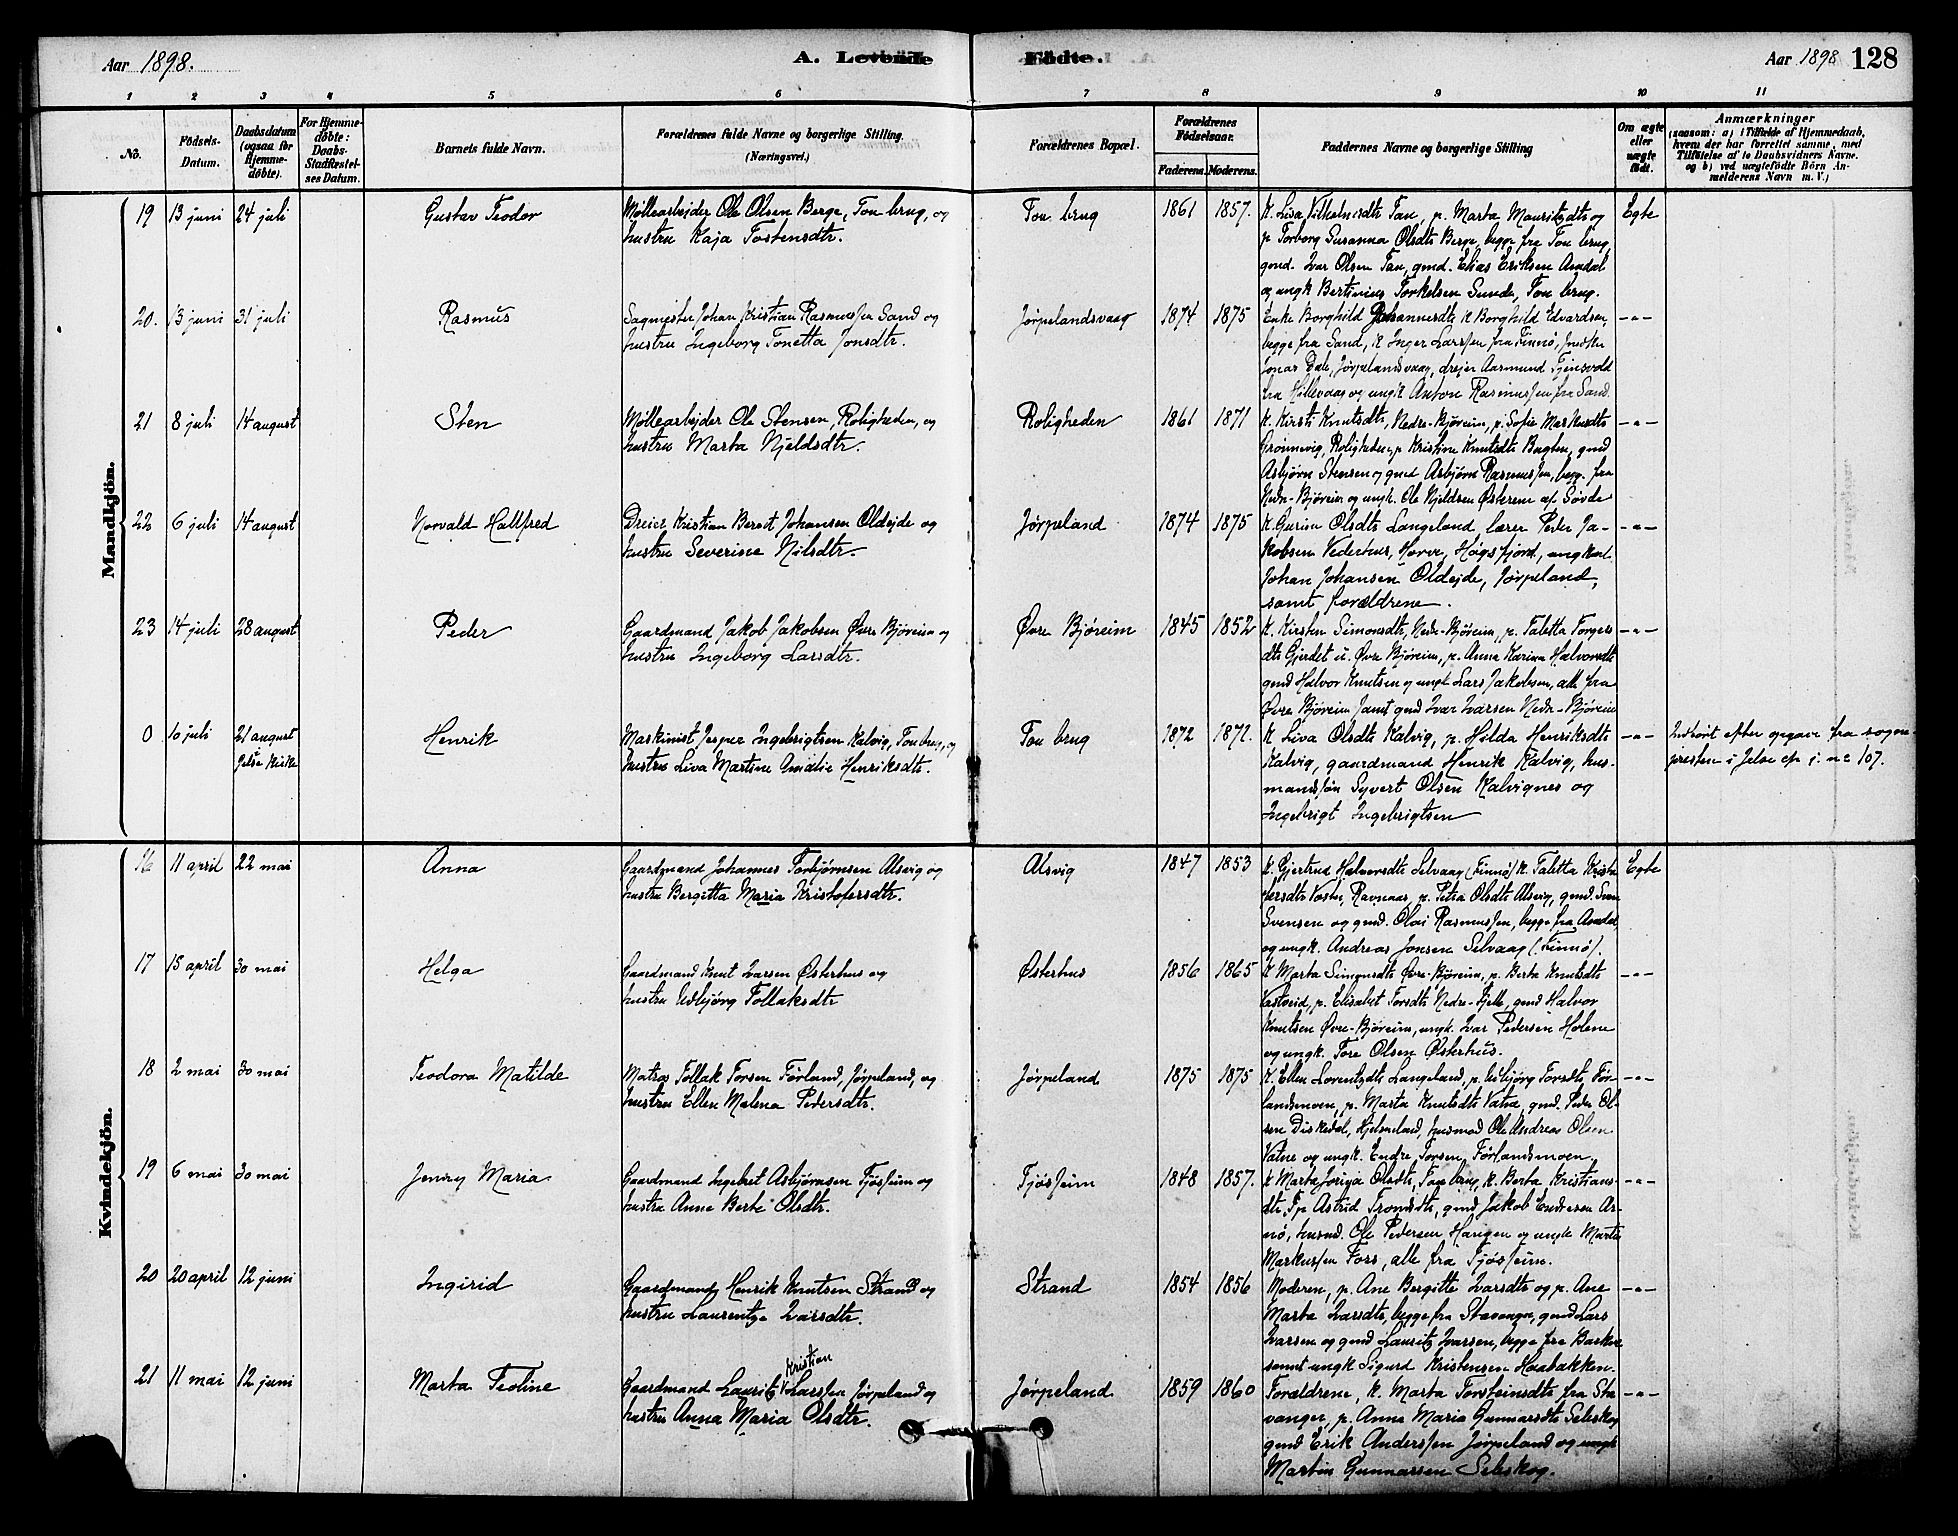 Aar 1898.
A. Levende
Födte.
Aar 1898 128
1 2 3 4 5 6 7 8 9 10 11
No.
Födsels-
Datum.
Daabsdatum
(ogsaa for
Hjemme-
döbte).
For Hjemme-
döbte:
Daabs-
Stadfæstel-
ses Datum.
Barnets fulde Navn.
Forældrenes fulde Navne og borgerlige Stilling.
(Næringsvei.)
Forældrenes Bopæl.
Forældrenes
Födselsaar.
Faderens. Moderens.
Faddernes Navne og borgerlige Stilling
Om ægte
eller
uægte
født.
Anmærkninger
(saasom: a) i Tilfælde af Hjemmedaab,
hvem der har forrettet samme, med
Tilföielse af to Daabsvidners Navne.
og b) ved uægtefödte Börn An-
melderens Navn m. V.)
Mandkjön.
19 13 juni 24 juli Gustav Teodor
Möllearbejder Ole Olsen Berge, Tou brug, og
hustru Kaja Tostensdtr.
Tou brug 1861 1857.
K. Lisa Vilhelmsdtr Tau, p. Marta Mauritzdtr og
p Torborg Susanna Olsdtr Berge, begge fra Tou brug,
gmd. Ivar Olsen Tau, gmd. Elias Eriksen Amdal
og ungk Bertinius Torkelsen Sunde, Tou brug.
Egte
20. 13 juni 31 juli Rasmus
Sagmester Johan Kristian Rasmussen Sand og
hustru Ingeborg Tonetta Jonsdtr.
Jørpelandsvaag 1874 1875
Enke Borghild Johannesdtr K Borghild Edvardsen,
begge fra Sand, K Inger Larssen fra Finnö,
Jonar Dale, Jørpelandsvaag, drejer Aasmund
fra Hillevaag og ungk Anton Rasmussen fra Sand.
-"-
21 8 juli 14 august Sten
Møllearbejder Ole Stensen, Roligheden, og
hustru Marta Njeldsdtr.
Roligheden 1861 1871
K. Kirsti Knutsdtr, Nedre-Björeim, p. Sofie Markusdtr
Grönnevig, Roligheden, p Kristine Knutsdtr, gmd
Asbjørn Stensen og gmd Asbjørn Rasmussen, begg. fra
Nedr-Björeim og ungk. Ole Njeldsen af Søvde
-"-
22 6 juli 14 august Norvald Hallfred
Dreier Kristian Berent Johansen Oldejde og
hustru Severine Nilsdtr
Jørpeland 1874 1875
K. Gurina Olsdtr Langeland, lærer Peder Ja-
kobsen Vederhus, Høgsfjord, ungkarl
Johan Johansen Oldejde, Jørpeland,
samt forældrene.
-"-
23 14 juli 28 august Peder
Gaardmand Jakob Jakobsen Øvre Björeim og
hustru Ingeborg Larsdtr.
Øvre Björeim 1845 1852
K. Kirsten Simonsdtr, Nedr-Björeim, p. Taletta Torgers
dtr Gjerdet u. Øvre Björeim, p. Anna Karina Halvorsdtr
gmd Halvor Knutsen og ungk Lars Jakobsen, alle fra
Øvre Björeim samt gmd Ivar Ivarsen Nedr-Björeim
-"-
0 10 juli 21 august
Jelse Kirke
Henrik
Maskinist Jesper Ingebrigtsen Kalvig, Tou brug, og
hustru Liva Martine Amalie Henriksdtr.
Tou brug 1872 1872.
K Liva Olsdtr Kalvig, p. Hilda Henriksdtr
Kalvig, gaardmand Henrik Kalvig, hus-
mandssøn Syvert Olsen Kalvignes og
Ingebrigt Ingebrigtsen
-"-
Indført efter opgave fra sogne-
presten i Jelse no 107.
Kvindekjön.
16 11 april 22 mai Anna
Gaardmand Johannes Torbjørnsen Alsvig og
hustru Bergitta Maria Kristofersdtr.
Alsvig 1847 1853
K. Gjertrud Halvorsdtr Selvaag (Finnö) K. Taletta Kristo
fersdtr, p. Petra Olsdtr Alsvig, gmd. Sven
Svensen og gmd. Olai Rasmussen, begge fra Amdal
og ungk. Andreas Jonsen Selvaag (Finnö).
Egte
17 15 april 30 mai Helga
Gaardmand Knut Ivarsen Østerhus og
hustru Udbjørg Tollaksdtr
Østerhus 1856 1865
K Marta Simonsdtr Øvre-Björeim, p. Berta Knutsdtr
p. Elisabet Torsdtr Nedre-Tjelle, gmd Halvor
Knutsen Øvre-Björeim, ungk. Ivar Pedersen Holene
og ungk. Tore Olsen Østerhus.
-"-
18 2 mai 30 mai Teodora Matilde
Matros Tollak Torsen Førland, Jørpeland, og
hustru Ellen Malena Pedersdtr.
Jørpeland 1875 1875
K. Ellen Lorentzdtr Langeland, p. Udbjørg Torsdtr För-
landsmoen, p. Marta Knutsdtr Vatne, gmd. Peder Ol-
sen Diskedal, Hjelmeland, husmd Ole Andreas Olsen
Vatne og ungk. Endre Torsen Førlandsmoen
-"-
19 6 mai 30 mai Jenny Maria
Gaardmand Ingebret Asbjørnsen Tjösseim og
hustru Anne Berte Olsdtr.
Tjösseim 1848 1857.
K Marta Jorina Olsdtr, Tou brug, K. Berta Kristians-
dtr, p Astrid Tronsdtr, gmd Jakob Endresen Ar-
nø, husmd. Ole Pedersen Haugen og ungk Martin
Markussen Foss, alle fra Tjösseim.
-"-
20 20 april 12 juni Ingirid
Gaardmand Henrik Knutsen Strand og
hustru Laurentze Ivarsdtr.
Strand 1854 1856
Moderen, p. Ane Bergitte Ivarsdtr og p. Ane
Marta Ivarsdtr, begge fra Stavanger, gmd Lars
Ivarsen og gmd Lauritz Ivarsen, begge fra Barkve
samt ungk Sigurd Kristensen Haabakken.
-"-
21 11 mai 12 juni Marta Teoline
Kristian
Gaardmand Lauritz Larssen Jørpeland og
hustru Anna Maria Olsdtr.
Jørpeland 1859 1860
Forældrene, K. Marta Torsteinsdtr fra Sta
vanger, p. Anna Maria Gunnarsdtr Seleskog
gmd Erik Anderssen Jørpeland og ungk
Martin Gunnarsen Seleskog.
-"-